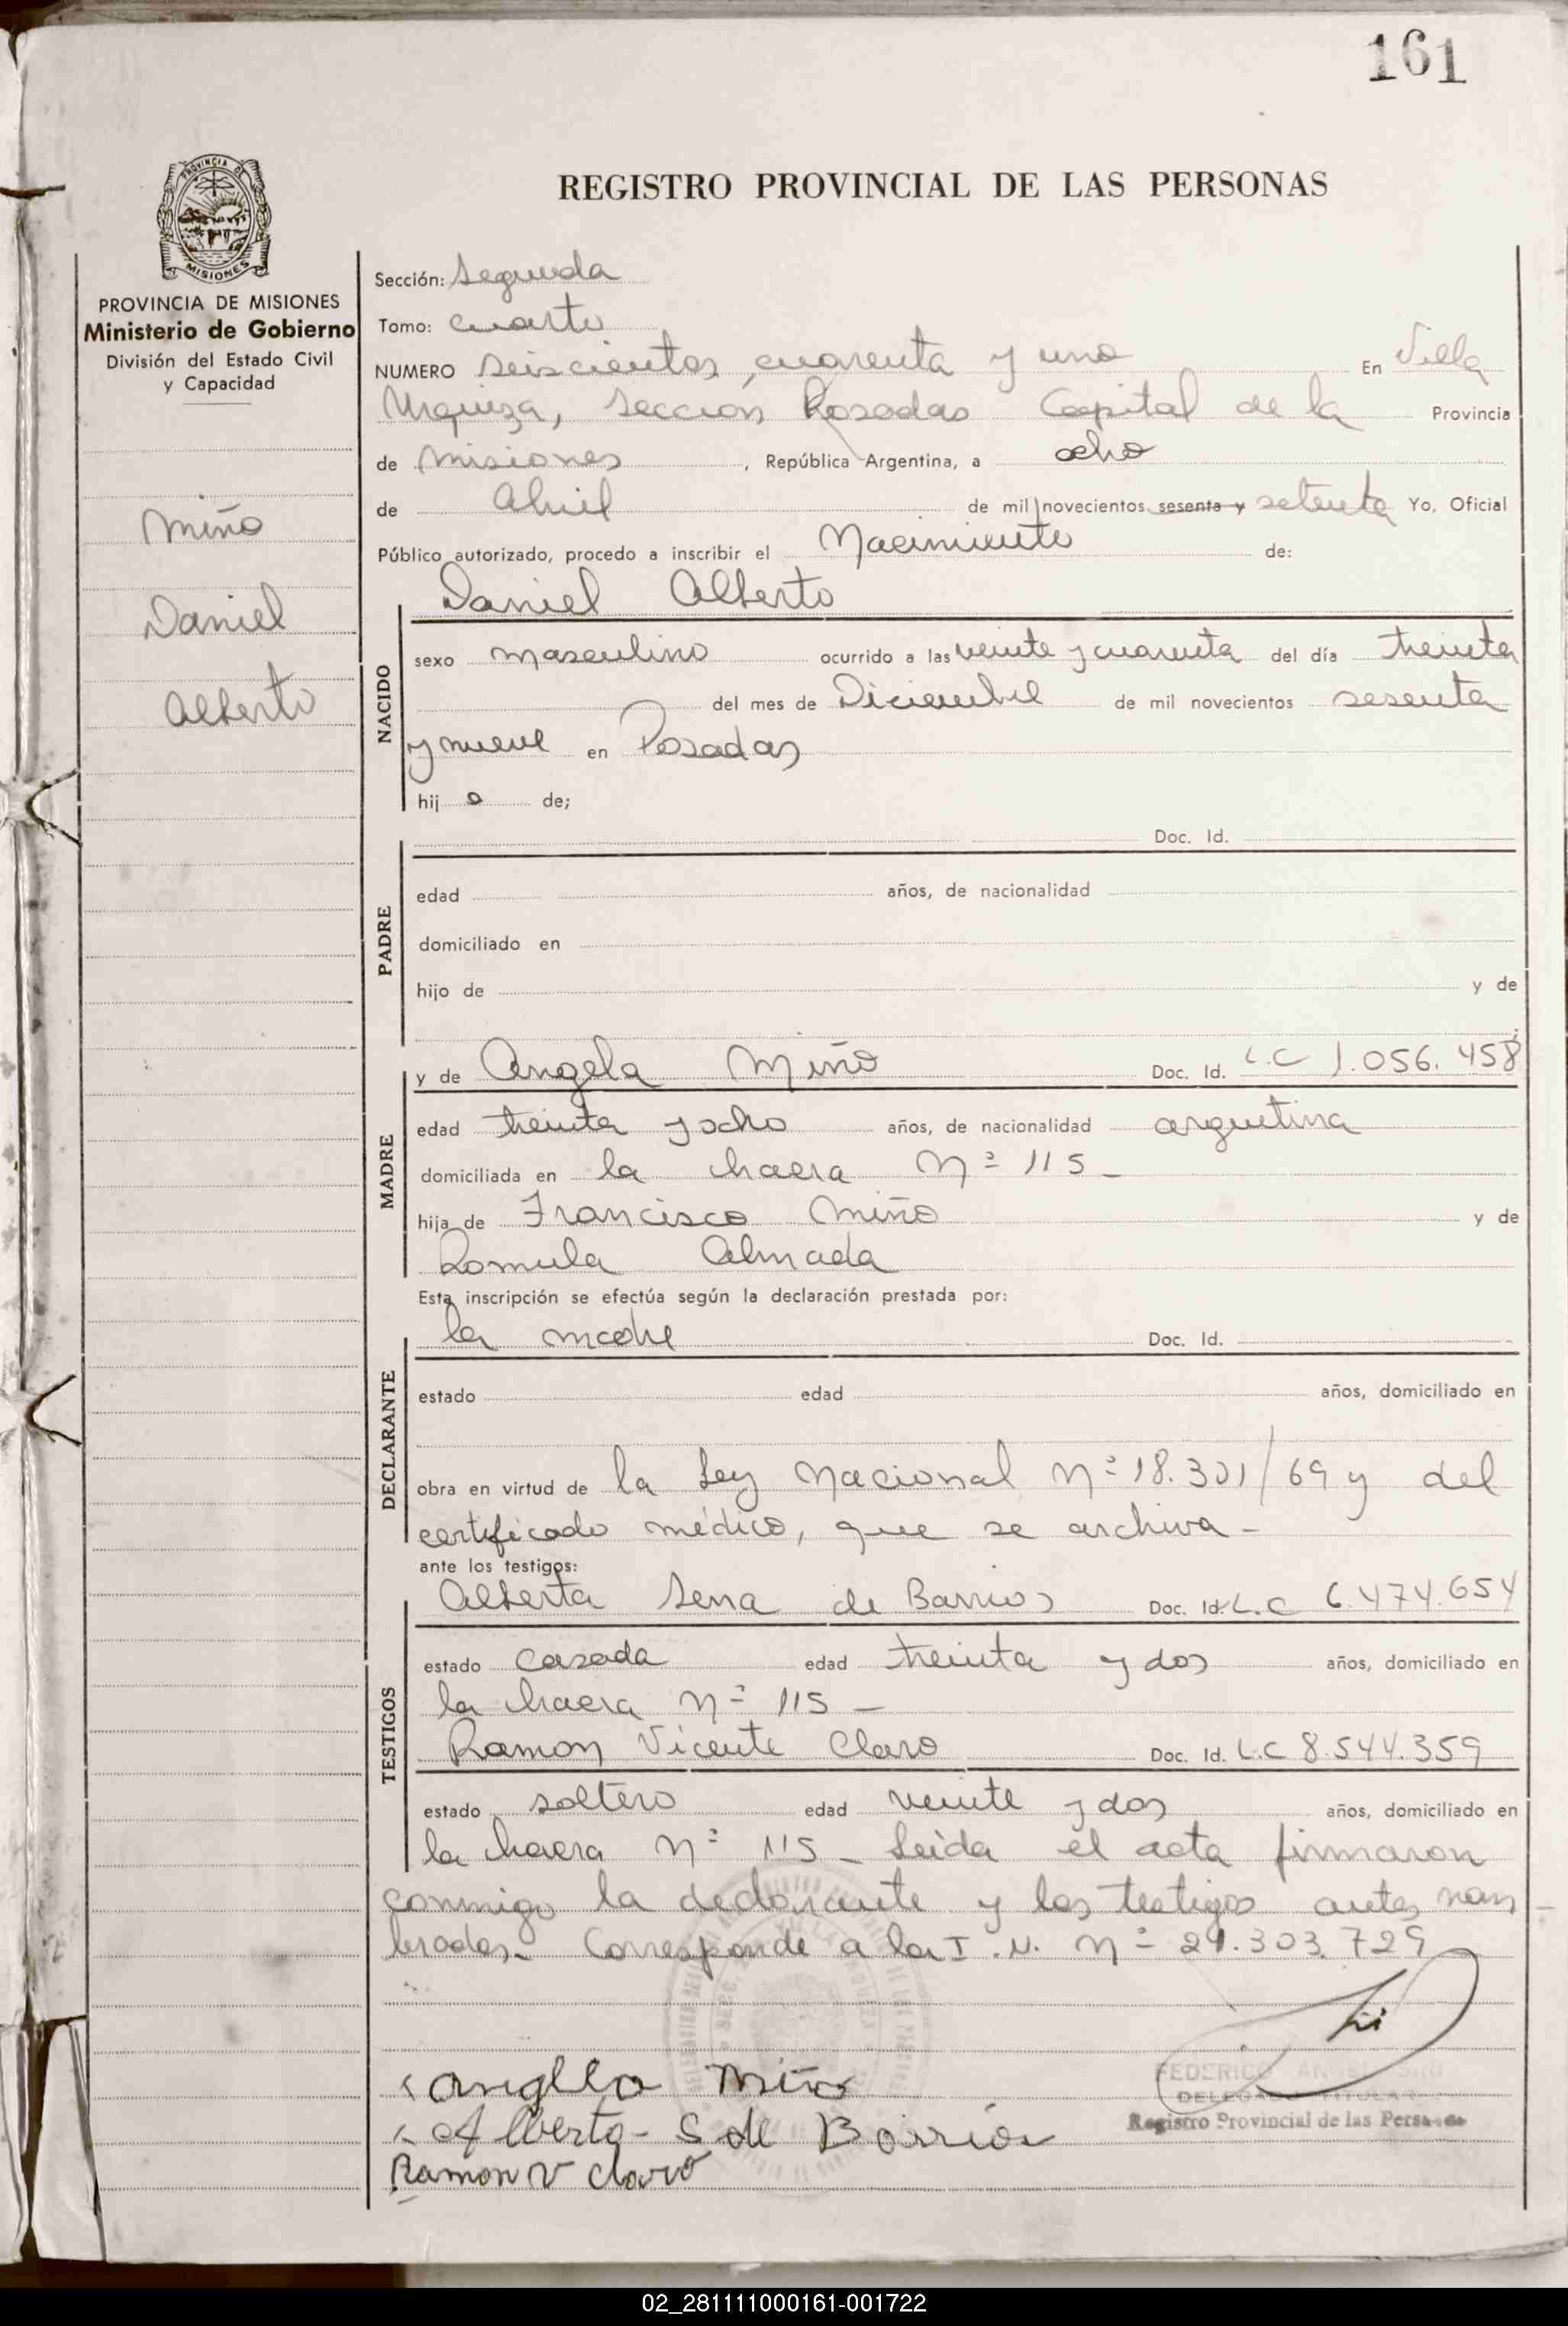 161
PROVINCIA DE
MISIONES
REGISTRO PROVINCIAL DE LAS PERSONAS
PROVINCIA DE MISIONES
Ministerio de Gobierno
División del Estado Civil
y Capacidad
Miño
Daniel
Alberto
Sección: Segunda
Tomo: Cuarto
NUMERO seiscientos, cuarenta y uno En Villa
Urquiza, Seccion Posadas Capital de la Provincia
de Misiones, República Argentina, a ocho
de Abril de mil novecientos sesenta y setenta Yo, Oficial
Público autorizado, procedo a inscribir el Nacimiento de:
Daniel Alberto
NACIDO
sexo masculino ocurrido a las veinte y cuarenta del día treinta
del mes de Diciembre de mil novecientos sesenta
y nueve en Posadas
hij o de;
Doc. Id.
PADRE
edad años, de nacionalidad
domiciliado en
hijo de y de
y de Angela Miño Doc. Id. L.C 1.056.458
MADRE
edad treinta y ocho años, de nacionalidad argentina
domiciliada en la chacra Nº 115-
hija de Francisco Miño y de
Romula Almada
Esta inscripción se efectúa según la declaración prestada por:
la madre Doc. Id.
DECLARANTE
estado edad años, domiciliado en
obra en virtud de la Ley Nacional Nº 18.301/69 y del
certificado médico, que se archiva-
ante los testigos:
Alberta Sena de Barrios Doc. Id. L.C 6.474.654
TESTIGOS
estado casada edad treinta y dos años, domiciliado en
la chacra Nº 115-
Ramon Vicente Claro Doc. Id. L.C 8.544.359
estado soltero edad veinte y dos años, domiciliado en
la chacra Nº 115- Leida el acta firmaron
conmigo la declarante y los testigos antes nom
brados- Corresponde a la I.N. Nº 21.303.729
Miño
Alberta- S de Barrios
Ramon V Claro
FEDERICO
DELEGADO TITULAR
Registro Provincial de las Personas
02_281111000161-001722